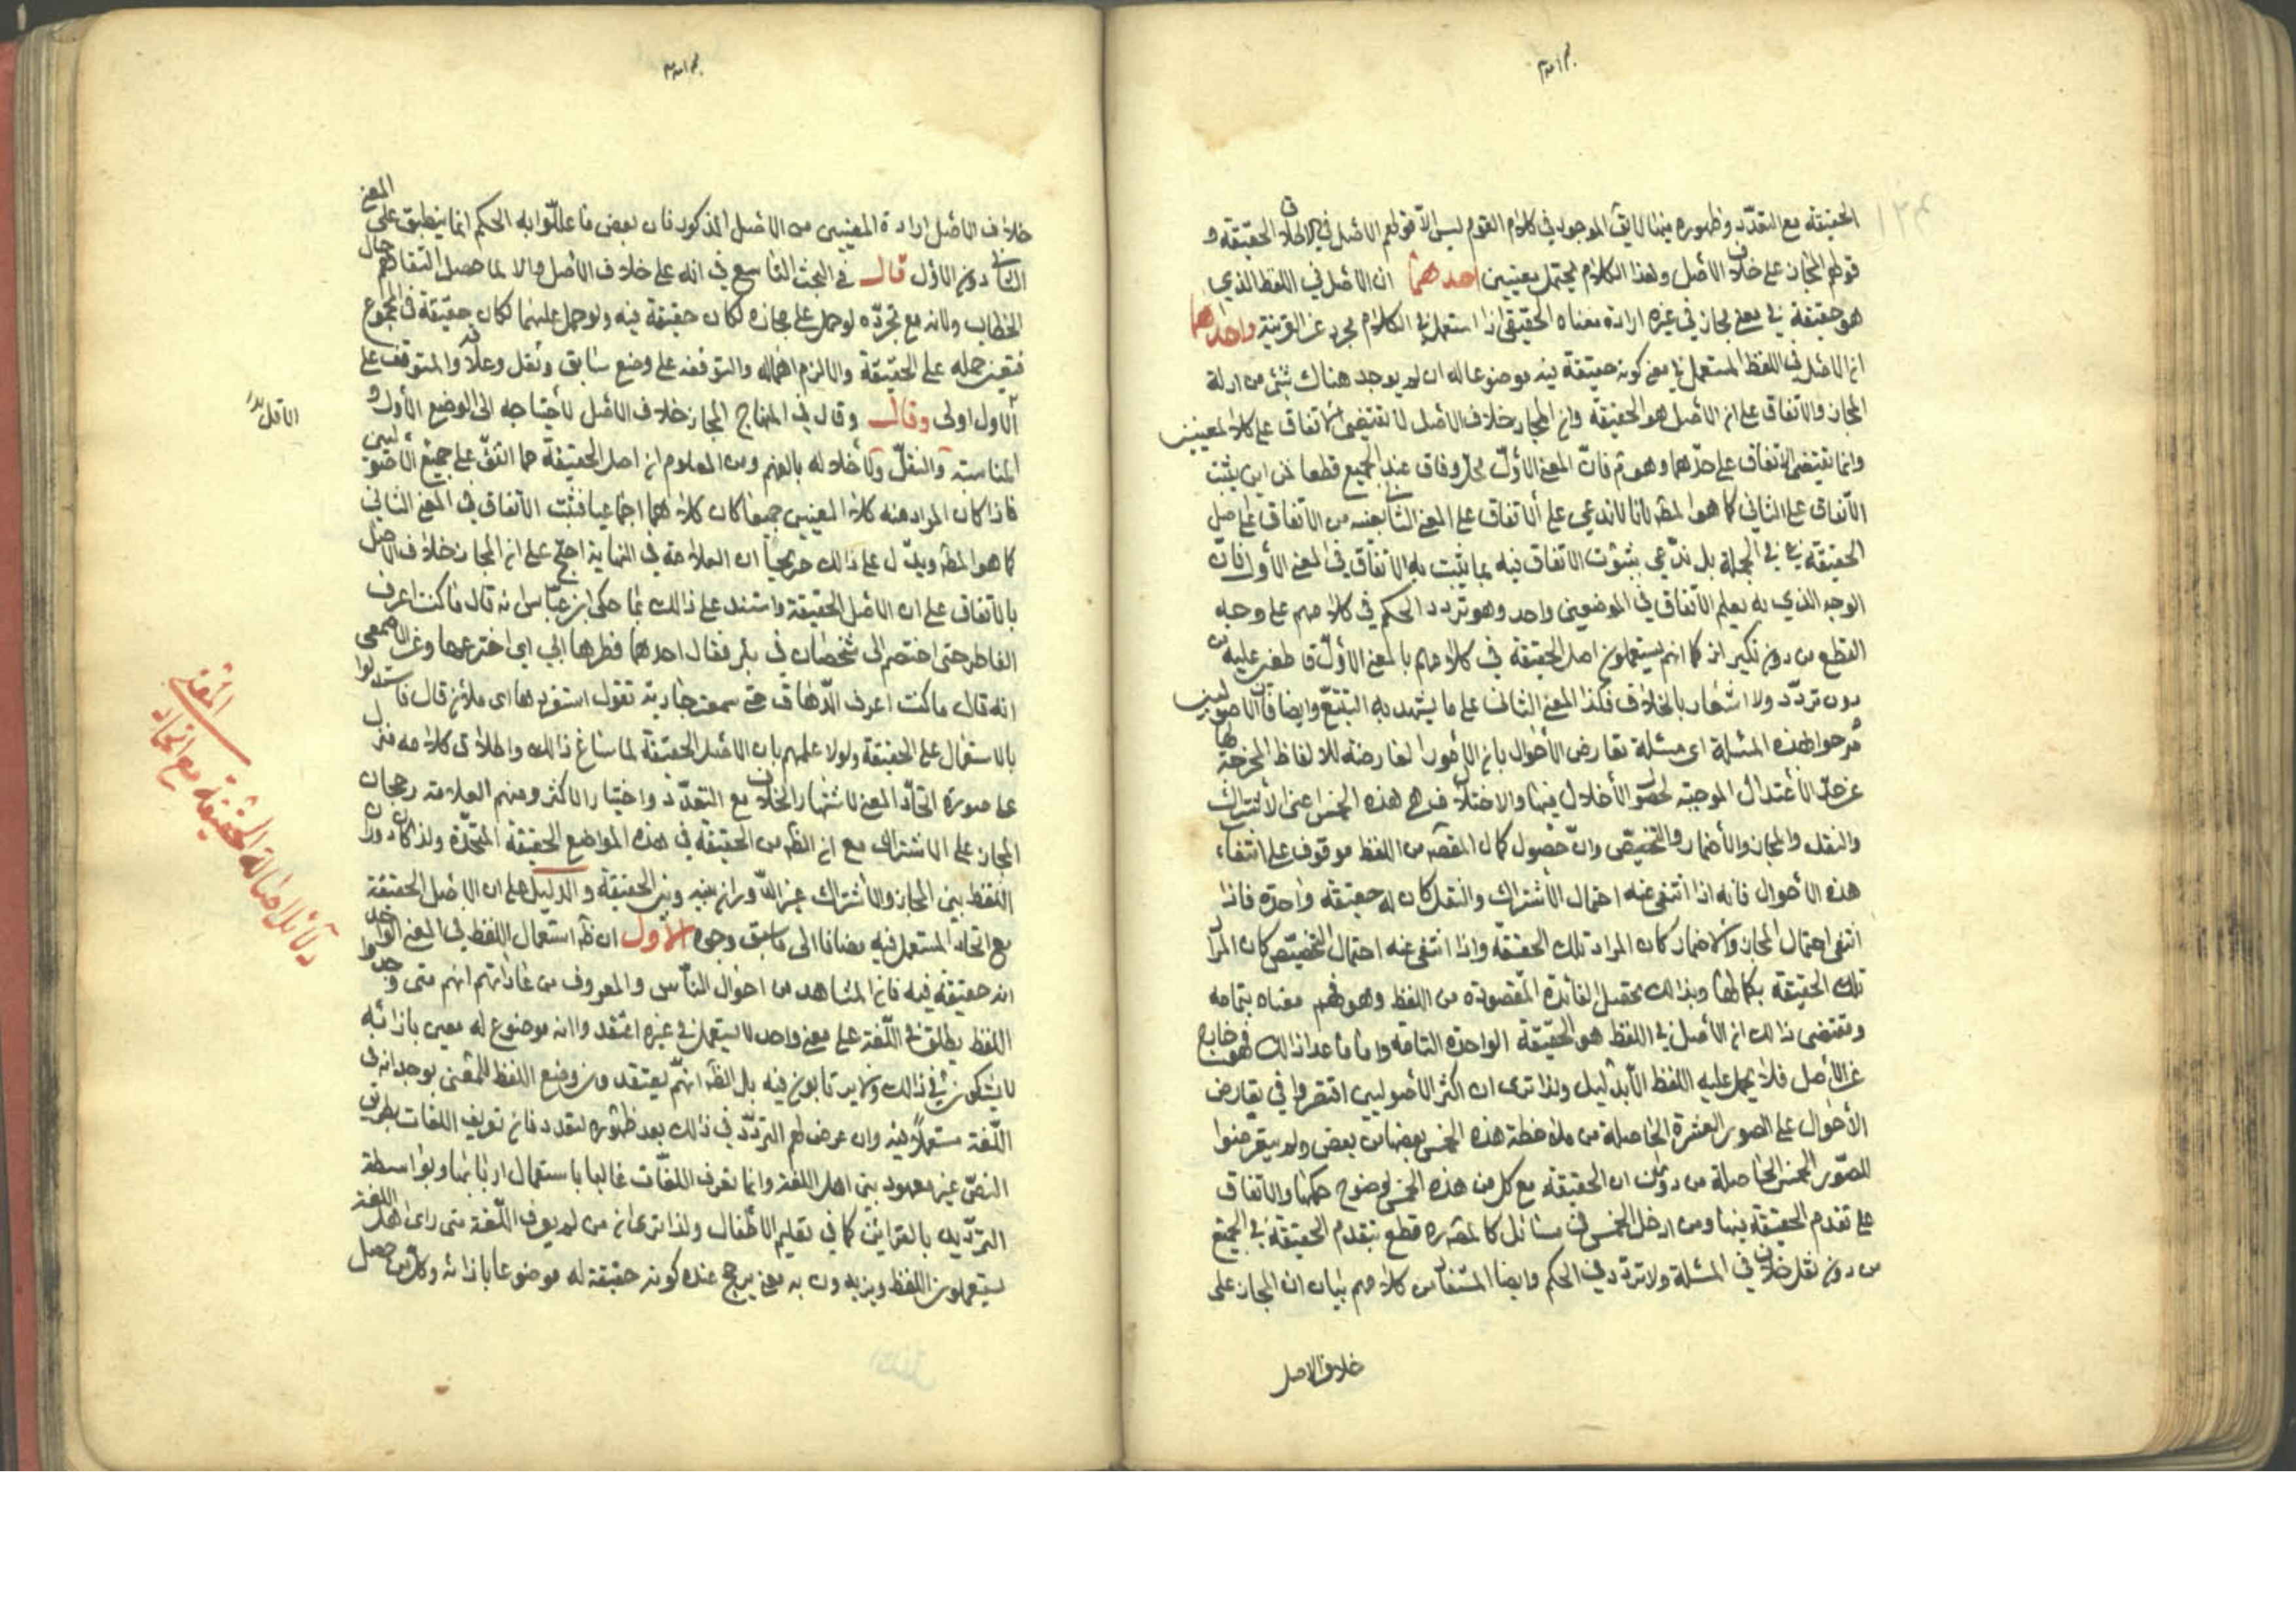 الحقيقة مع التعدد وظهوره فيها لا يق الموجود في كلام القوم ليس الا قولهم الاصل في الاطلاق الحقيقة و
قولهم المجاز على خلاف الاصل وهذا الكلام يحتمل معنيين احدهما ان الاصل في اللفظ الذي
هو حقيقة في معنى مجاز في غيره ارادة معناه الحقيقي اذا استعمل في الكلام مجرد عن القرينة واحدهما
ان الاصل في اللفظ المستعمل في معنى كونه حقيقة فيه موضوعا له ان لم يوجد هناك شئ من ادلة
المجاز والاتفاق على ان الاصل هو الحقيقة وان المجاز خلاف الاصل لا يقتضي الاتفاق على كلا المعنيين
وانما يقتضي الاتفاق على احدهما وهو ثم فان المعنى الاول محل وفاق عند الجميع قطعا فمن اين يثبت
الاتفاق على الثاني كما هو المط لانا لا ندعي على الاتفاق على المعنى الثاني بعينه من الاتفاق على اصل
الحقيقة في الجملة بل ندعي بثبوت الاتفاق فيه بما يثبت به الاتفاق في المعنى الاول فان
الوجه الذي به يعلم الاتفاق في الموضعين واحد وهو تردد الحكم في كلامهم على وجه
القطع من دون نكير اذ كما انهم يستعملون اصل الحقيقة في كلامهم بالمعنى الاول قاطعين عليه من
دون تردد ولا اشعار بالخلاف فكذا المعنى الثاني على ما يشهد به التتبع وايضا فان الاصوليين
صرحوا لهذه المسئلة اي مسئلة تعارض الاحوال بان الامور العارضة للالفاظ المخرجة لها
عن حد الاعتدال الموجبة لحصول الاخلال فيها والاختلال فهم هذه الخمس اعني الاشتراك
والنقل والمجاز والاضمار والتخصيص وان حصول كمال المقصد من اللفظ موقوف على انتفاء
هذه الاحوال فانه اذا انتفى عنه احتمال الاشتراك والنقل كان له حقيقة واحدة فاذا
انتفى احتمال المجاز والاضمار كان المراد تلك الحقيقة واذا انتفى عنه احتمال التخصيص كان المراد
تلك الحقيقة بكمالها وبذلك يحصل الفائدة المقصودة من اللفظ وهو فهم معناه بتمامه
ومقتضى ذلك ان الاصل في اللفظ هو الحقيقة الواحدة التامة واما ما عدا ذلك فهو خارج
عن الاصل فلا يحمل عليه اللفظ الا بدليل ولذا ترى ان اكثر الاصوليين اقتصروا في تعارض
الاحوال على الصور العشرة الحاصلة من ملاحظة هذه الخمس بعضها من بعض ولم يتعرضوا
للصور الخمس الحاصلة من دوران الحقيقة مع كل من هذه الخمس لوضوح حكمها والاتفاق
على تقدم الحقيقة فيها ومن ادخل الخمس في مسائل قطع بتقدم الحقيقة في الجميع
من دون نقل خلاف في المسئلة ولا تردد في الحكم وايضا المستفاد من كلامهم بيان ان المجاز على
خلاف الاصل
خلاف الاصل ارادة المعنيين من الاصل المذكور فان بعض ما عللوا به الحكم انما ينطبق على المعنى
الثاني دون الاول قال في البحث التاسع في انه على خلاف الاصل والا لما حصل التفاهم حال
الخطاب ولانه مع تجرده لو حمل على مجازه لكان حقيقة فيه ولو حمل عليهما لكان حقيقة في المجموع
فتعين حمله على الحقيقة والا لزم اهماله والتوقفه على وضع سابق ونقل وعلاقة والمتوقف على
الاول اولى وقال وقال في المنهاج المجاز خلاف الاصل لاحتياجه الى الوضع الاول و
المناسبة والنقل ولاخلاله بالفهم ومن المعلوم ان اصل الحقيقة مما اتفق على جميع الاصوليين
فاذا كان المراد منه كلا المعنيين جميعا كان كلاهما اجماعيا فثبت الاتفاق في المعنى الثاني
كما هو المط ويدل على ذلك صريحا ان العلامة في النهاية احتج على ان المجاز خلاف الاصل
بالاتفاق على ان الاصل الحقيقة واستند على ذلك بما حكى ابن عباس انه قال ما كنت اعرف
الفاطر حتى اختصم الى شخصان في بئر فقال احدهما فطرها ابي اي اخترعها وعن الاصمعي
انه قال ما كنت اعرف الدهاق حتى سمعت جارية تقول اسقني دهاقا اي ملآن قال فاستدلوا
بالاستعمال على الحقيقة ولولا علمهم بان الاصل الحقيقة لما ساغ ذلك واطلاق كلامه منزل
على صورة اتحاد المعنى لاشتهار الخلاف مع التعدد واختيار الاكثر ومنهم العلامة رجحان
المجاز على الاشتراك مع ان الظ من الحقيقة في هذه المواضع الحقيقة المتحدة ولذا كان دوران
اللفظ بين المجاز والاشتراك غير الدوران بينه وبين الحقيقة والدليل على ان الاصل الحقيقة
مع اتحاد المستعمل فيه مضافا الى ما سبق وجوه الاول ان ظ استعمال اللفظ في المعنى الواحد
انه حقيقة فيه فان المشاهد من احوال الناس والمعروف من عاداتهم انهم متى وجدوا
اللفظ يطلق في اللغة على معنى واحد لا يستعمل في غيره اعتقدوا انه موضوع له معين بازائه
لا يشكون في ذلك ولا يرتابون فيه بل الظ انهم يعتقدون وضع اللفظ للمعنى بوجدانه في
اللغة مستعملا فيه وان عرض لهم التردد في ذلك بعد ظهور التعدد فان تعريف اللغات بطريق
النص غير معهود بين اهل اللغة وانما تعرف اللغات غالبا باستعمال اربابها وبواسطة
الترديد بالقرائن كما في تعليم الاطفال ولذا ترى ان من لم يعرف اللغة متى راى اهل اللغة
يستعملون اللفظ ويريدون به معنى يرجح عنده كونه حقيقة له موضوعا بازائه وكل من حصل
دلائل اصالة الحقيقة مع اتحاد
المعنى